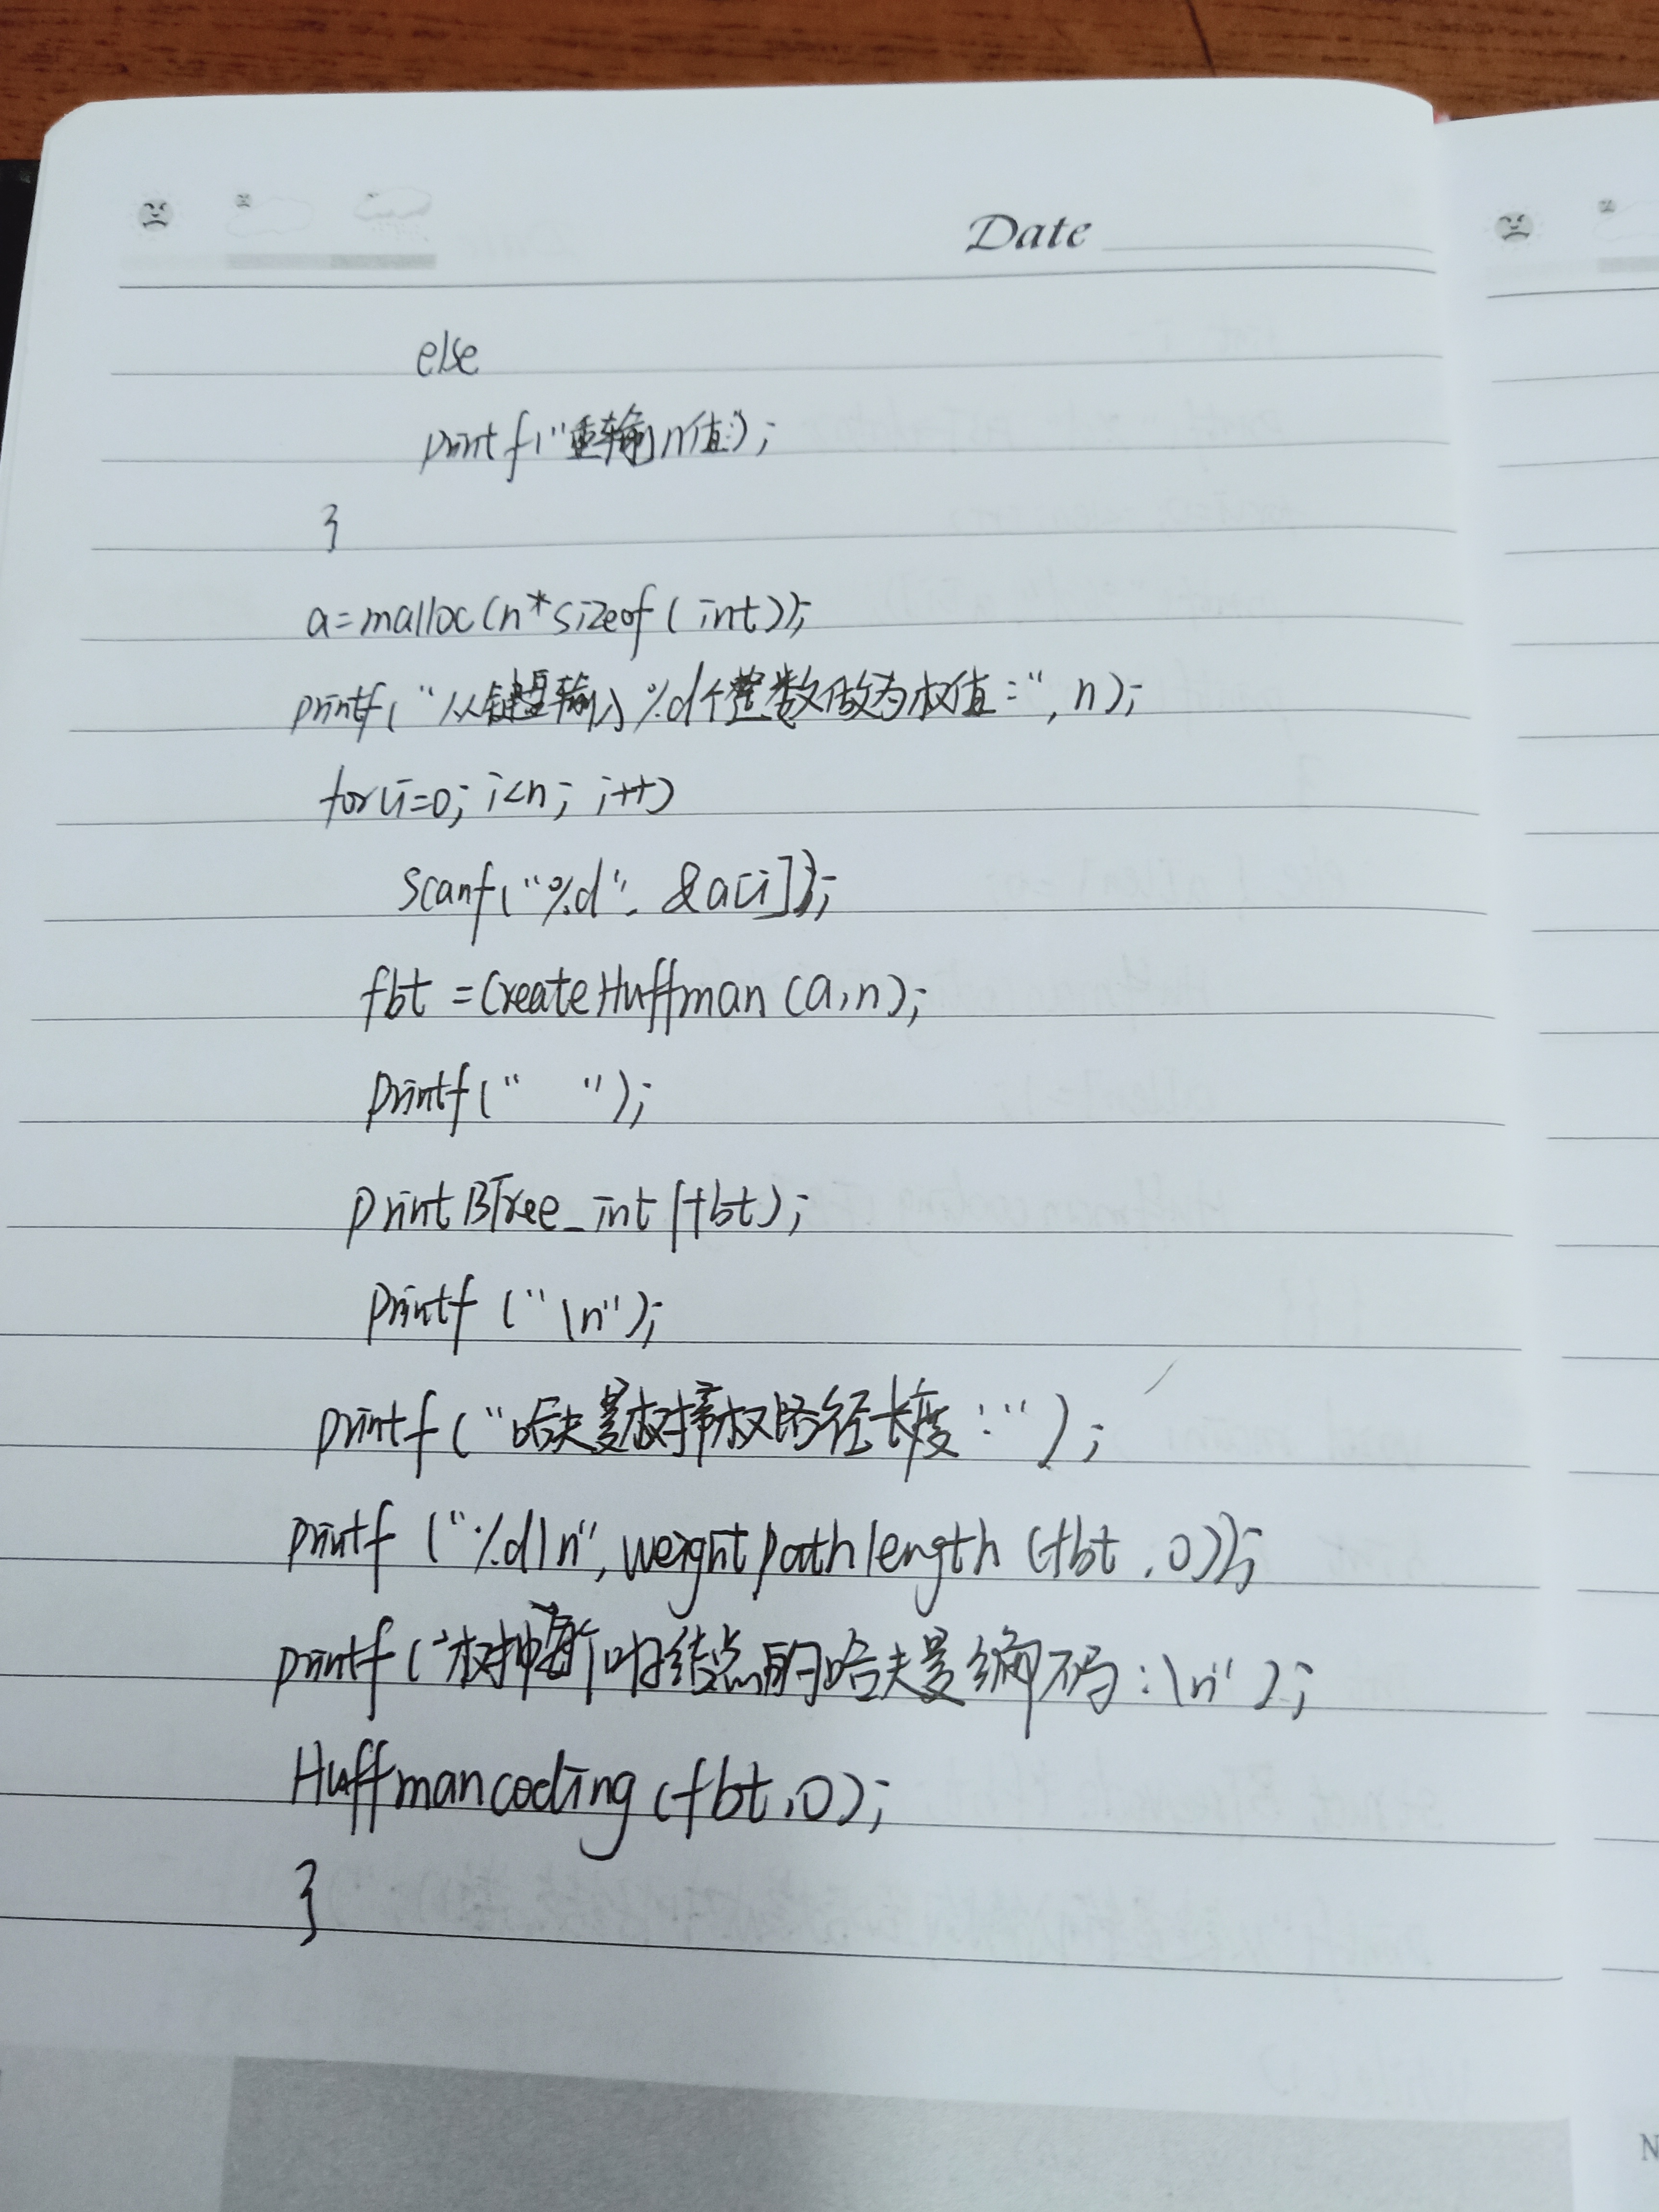 Date
else
printf("重输n值:");
}
a=malloc(n*sizeof(int));
printf("从键盘输入%d个整数做为权值:",n);
for(i=0; i<n; i++)
scanf("%d", &a[i]);
fbt=CreateHuffman(a,n);
printf(" ");
printBTree_int(fbt);
printf("\n");
printf("哈夫曼树带权路径长度:");
printf("%d\n",weightpathlength(fbt,0));
printf("树中每个叶结点的哈夫曼编码:\n");
Huffmancoding(fbt,0);
}
N